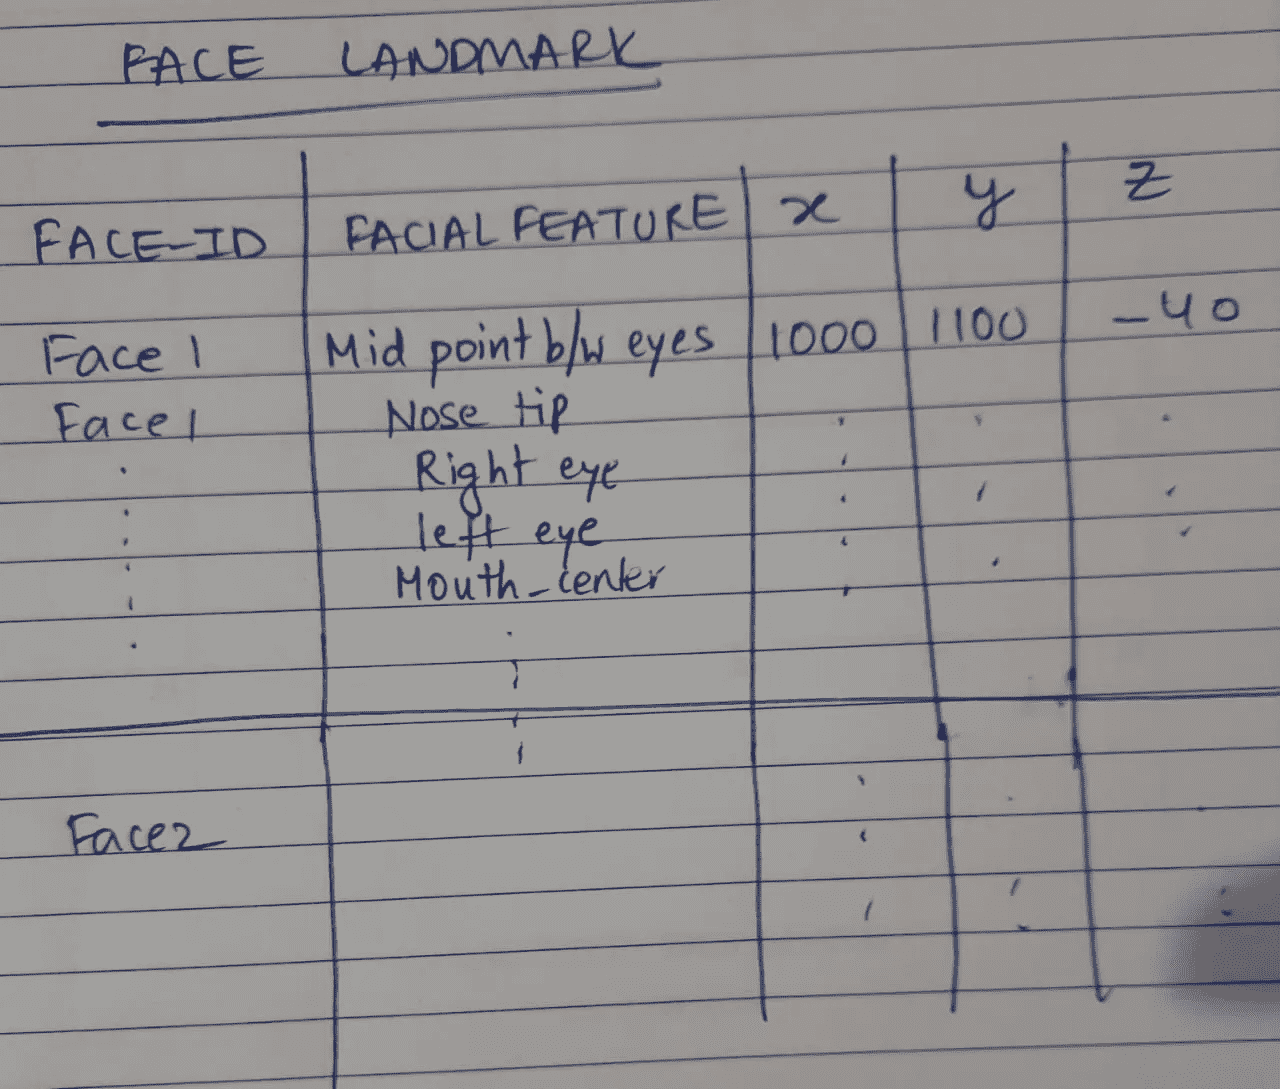 FACE LANDMARK
FACE-ID FACIAL FEATURE x y z
Face 1 Mid point b/w eyes 1000 1100 -40
Face 1 Nose tip
Right eye
left eye
Mouth-center
Face2